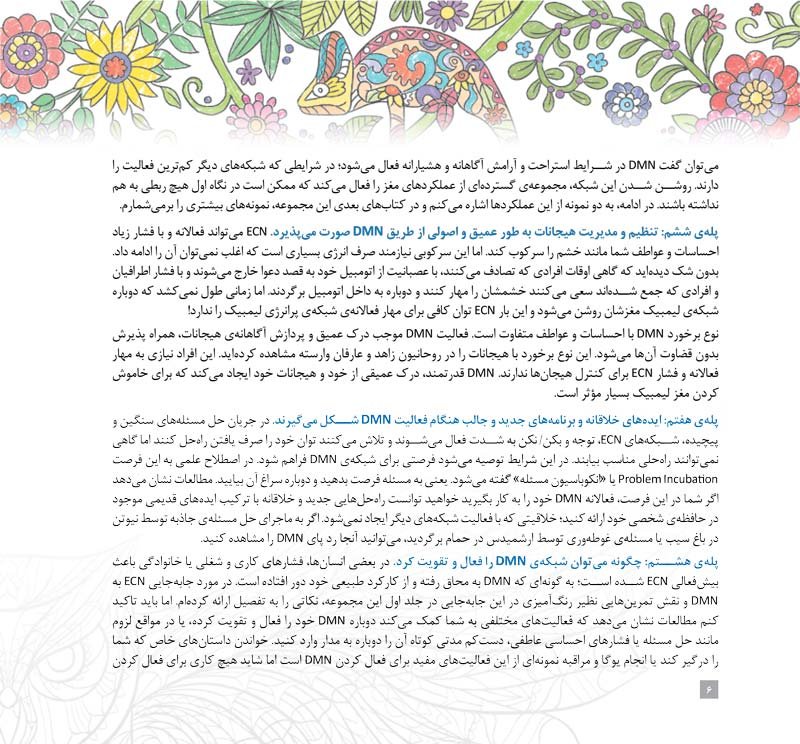 می‌توان گفت DMN در شـــرایط استراحت و آرامش آگاهانه و هشیارانه فعال می‌شود؛ در شرایطی که شبکه‌های دیگر کم‌ترین فعالیت را
دارند. روشـــن شـــدن این شبکه، مجموعه‌ی گسترده‌ای از عملکردهای مغز را فعال می‌کند که ممکن است در نگاه اول هیچ ربطی به هم
نداشته باشند. در ادامه، به دو نمونه از این عملکردها اشاره می‌کنم و در کتاب‌های بعدی این مجموعه، نمونه‌های بیشتری را برمی‌شمارم.
پله‌ی ششم: تنظیم و مدیریت هیجانات به طور عمیق و اصولی از طریق DMN صورت می‌پذیرد. ECN می‌تواند فعالانه و با فشار زیاد
احساسات و عواطف شما مانند خشم را سرکوب کند. اما این سرکوبی نیازمند صرف انرژی بسیاری است که اغلب نمی‌توان آن را ادامه داد.
بدون شک دیده‌اید که گاهی اوقات افرادی که تصادف می‌کنند، با عصبانیت از اتومبیل خود به قصد دعوا خارج می‌شوند و با فشار اطرافیان
و افرادی که جمع شـــده‌اند سعی می‌کنند خشمشان را مهار کنند و دوباره به داخل اتومبیل برگردند. اما زمانی طول نمی‌کشد که دوباره
شبکه‌ی لیمبیک مغزشان روشن می‌شود و این بار ECN توان کافی برای مهار فعالانه‌ی شبکه‌ی پرانرژی لیمبیک را ندارد!
نوع برخورد DMN با احساسات و عواطف متفاوت است. فعالیت DMN موجب درک عمیق و پردازش آگاهانه‌ی هیجانات، همراه پذیرش
بدون قضاوت آن‌ها می‌شود. این نوع برخورد با هیجانات را در روحانیون زاهد و عارفان وارسته مشاهده کرده‌اید. این افراد نیازی به مهار
فعالانه و فشار ECN برای کنترل هیجان‌ها ندارند. DMN قدرتمند، درک عمیقی از خود و هیجانات خود ایجاد می‌کند که برای خاموش
کردن مغز لیمبیک بسیار مؤثر است.
پله‌ی هفتم: ایده‌های خلاقانه و برنامه‌های جدید و جالب هنگام فعالیت DMN شـــکل می‌گیرند. در جریان حل مسئله‌های سنگین و
پیچیده، شـــبکه‌های ECN، توجه و بکن/نکن به شـــدت فعال می‌شـــوند و تلاش می‌کنند توان خود را صرف یافتن راه‌حل کنند اما گاهی
نمی‌توانند راه‌حلی مناسب بیابند. در این شرایط توصیه می‌شود فرصتی برای شبکه‌ی DMN فراهم شود. در اصطلاح علمی به این فرصت
Problem Incubation یا «انکوباسیون مسئله» گفته می‌شود. یعنی به مسئله فرصت بدهید و دوباره سراغ آن بیایید. مطالعات نشان می‌دهد
اگر شما در این فرصت، فعالانه DMN خود را به کار بگیرید خواهید توانست راه‌حل‌هایی جدید و خلاقانه با ترکیب ایده‌های قدیمی موجود
در حافظه‌ی شخصی خود ارائه کنید؛ خلاقیتی که با فعالیت شبکه‌های دیگر ایجاد نمی‌شود. اگر به ماجرای حل مسئله‌ی جاذبه توسط نیوتن
در باغ سیب یا مسئله‌ی غوطه‌وری توسط ارشمیدس در حمام برگردید، می‌توانید آنجا رد پای DMN را مشاهده کنید.
پله‌ی هشـــتم: چگونه می‌توان شبکه‌ی DMN را فعال و تقویت کرد. در بعضی انسان‌ها، فشارهای کاری و شغلی یا خانوادگی باعث
بیش‌فعالی ECN شـــده اســـت؛ به گونه‌ای که DMN به محاق رفته و از کارکرد طبیعی خود دور افتاده است. در مورد جابه‌جایی ECN به
DMN و نقش تمرین‌هایی نظیر رنگ‌آمیزی در این جابه‌جایی در جلد اول این مجموعه، نکاتی را به تفصیل ارائه کرده‌ام. اما باید تاکید
کنم مطالعات نشان می‌دهد که فعالیت‌های مختلفی به شما کمک می‌کند دوباره DMN خود را فعال و تقویت کرده، یا در مواقع لزوم
مانند حل مسئله یا فشارهای احساسی عاطفی، دست‌کم مدتی کوتاه آن را دوباره به مدار وارد کنید. خواندن داستان‌های خاص که شما
را درگیر کند یا انجام یوگا و مراقبه نمونه‌ای از این فعالیت‌های مفید برای فعال کردن DMN است اما شاید هیچ کاری برای فعال کردن
۶